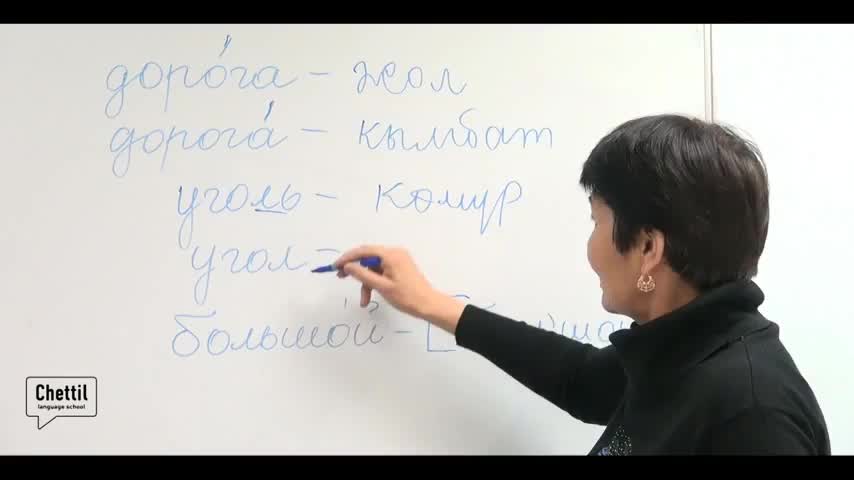 доро́га – жол
дорога́ – кымбат
уголь – көмүр
угол –
большо́й – [
Chettil
language school